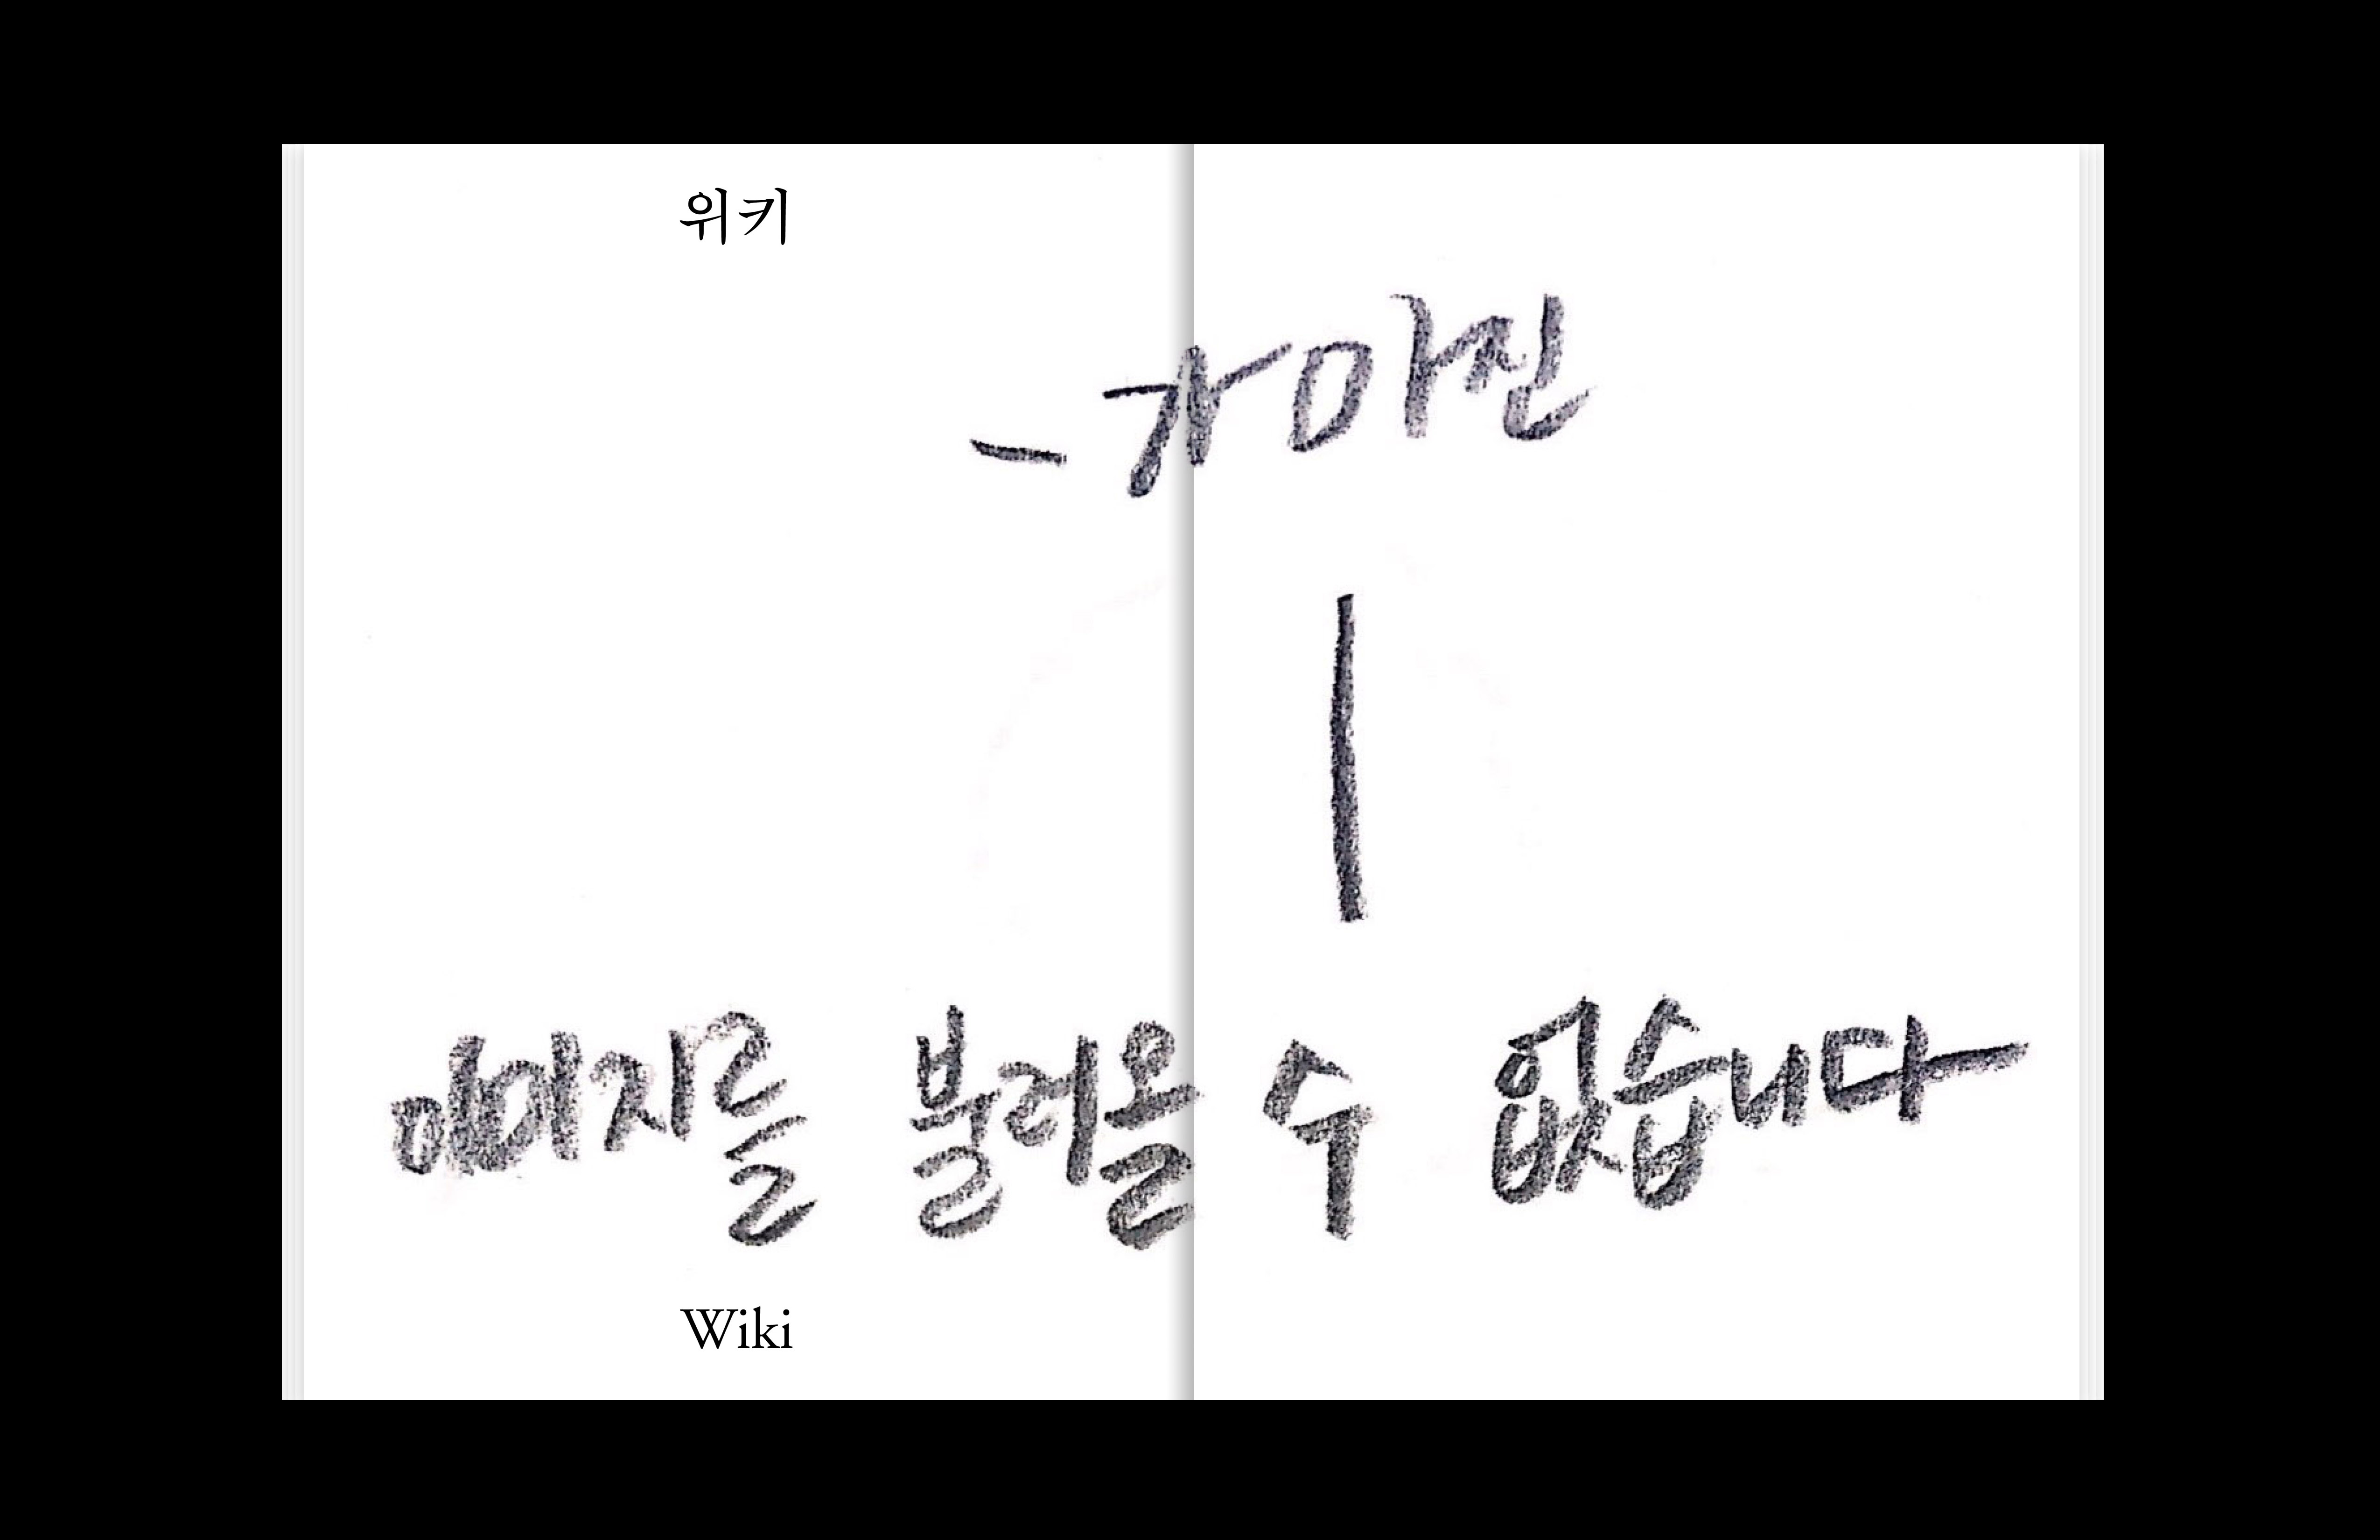 위키
-가마신
이미지를 불러올 수 없습니다
Wiki